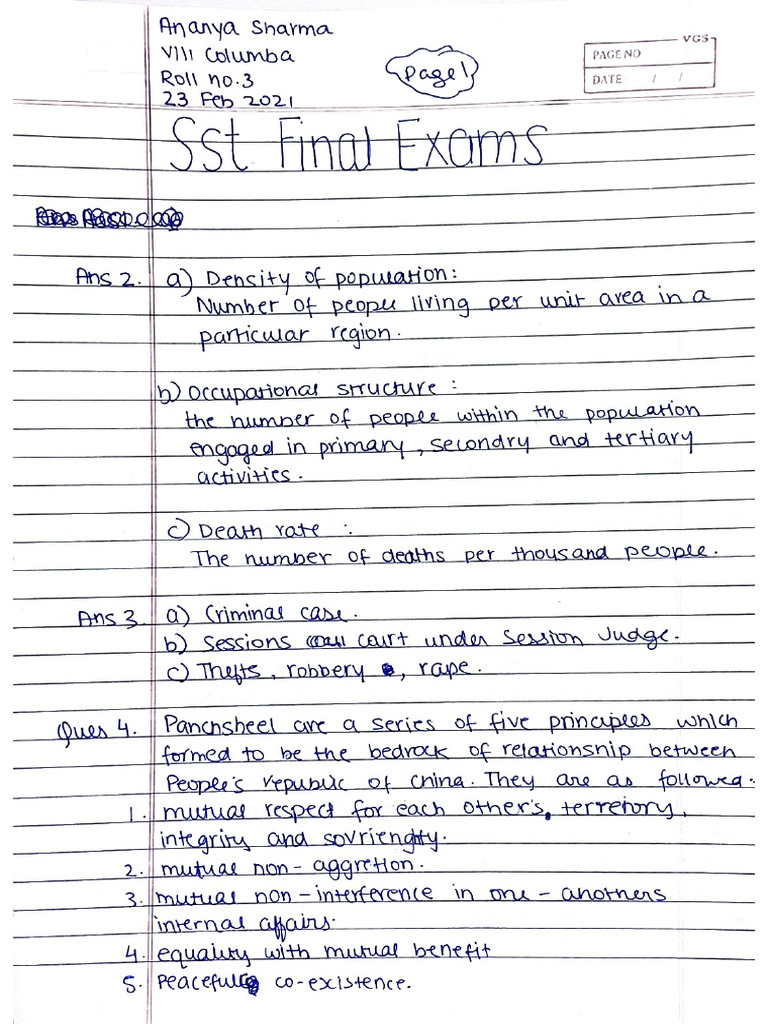 Ananya Sharma
VIII Columba
Roll no.3
23 Feb 2021
Page 1
VGS
PAGE NO
DATE / /
Sst Final Exams
Ans 2. a) Density of population:
Number of people living per unit area in a
particular region.
b) Occupational structure :
the number of people within the population
engaged in primary, secondry and tertiary
activities.
c) Death rate :
The number of deaths per thousand people.
Ans 3. a) Criminal case.
b) Sessions court under Session Judge.
c) Thefts, robbery , rape.
Ques 4. Panchsheel are a series of five principles which
formed to be the bedrock of relationship between
People's republic of China. They are as followed:
1. mutual respect for each other's, terretory,
integrity and sovrienghty.
2. mutual non-aggretion.
3. mutual non-interference in one-anothers
internal affairs.
4. equality with mutual benefit
5. Peaceful co-existence.